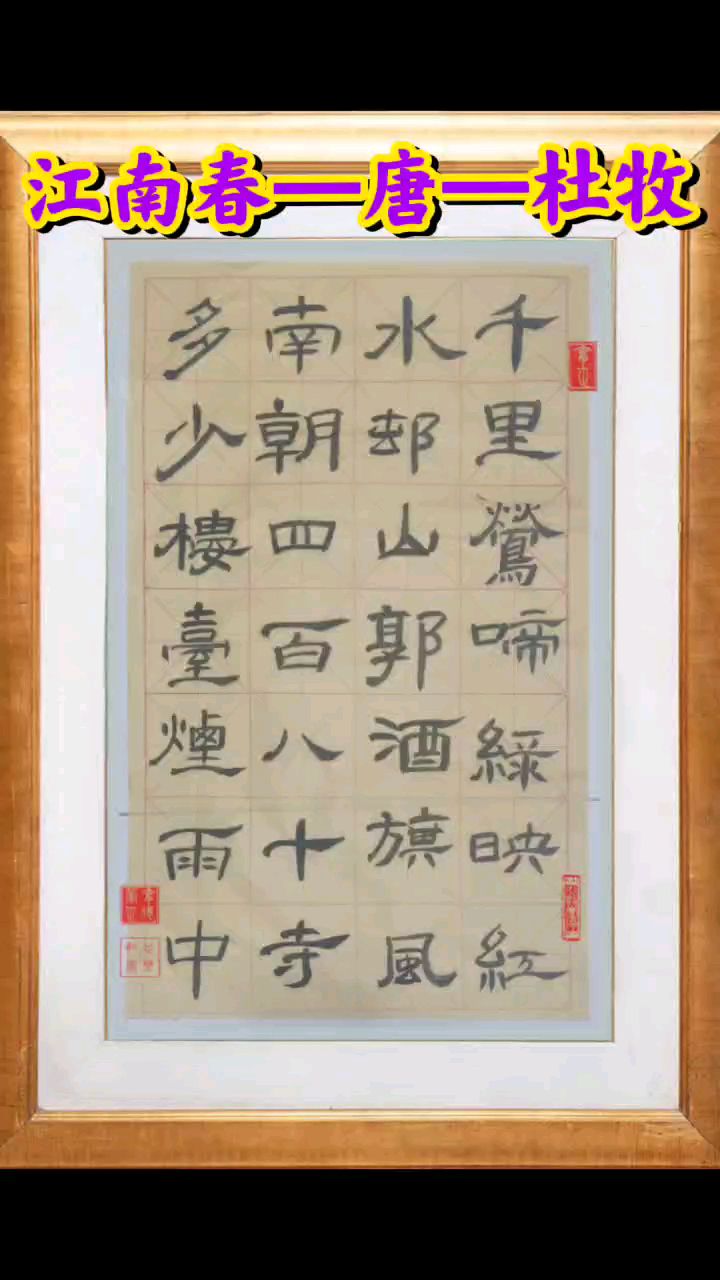 江南春—唐—杜牧
千里鶯啼綠映紅
水邨山郭酒旗風
南朝四百八十寺
多少樓臺煙雨中